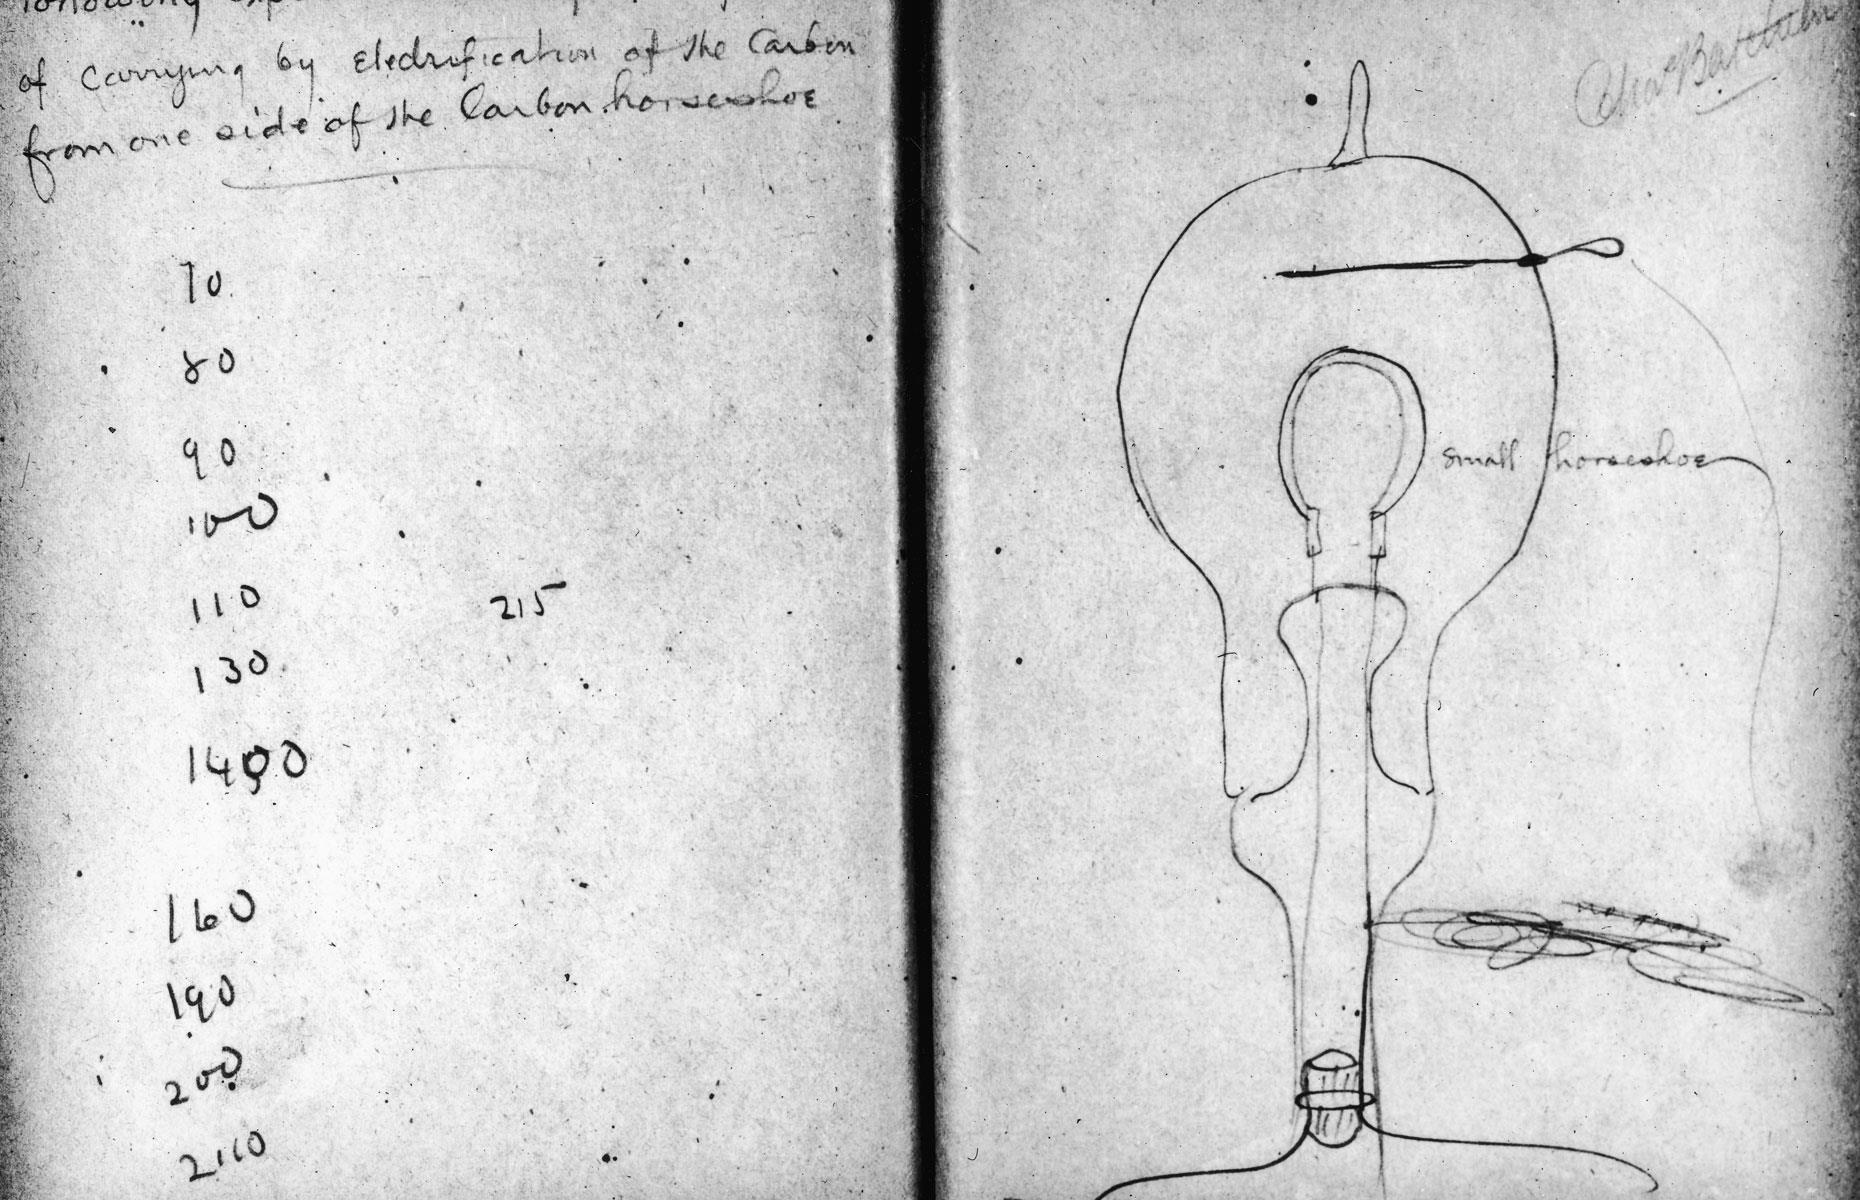 following
of carrying by electrification of the Carbon
from one side of the Carbon horseshoe
70
80
90
100
110
215
130
1400
160
190
200
2110
Chas Batchelor
small horseshoe